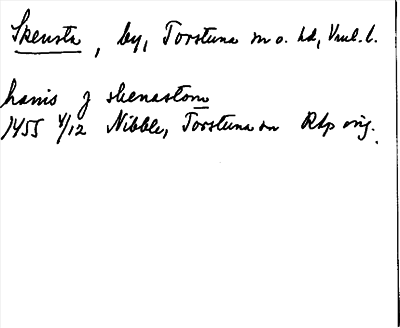 Skensta, by, Torstuna sn o. hd, Vml. l.
hanis j skenastom
1455 4/12 Nibble, Torstuna sn RAp orig.